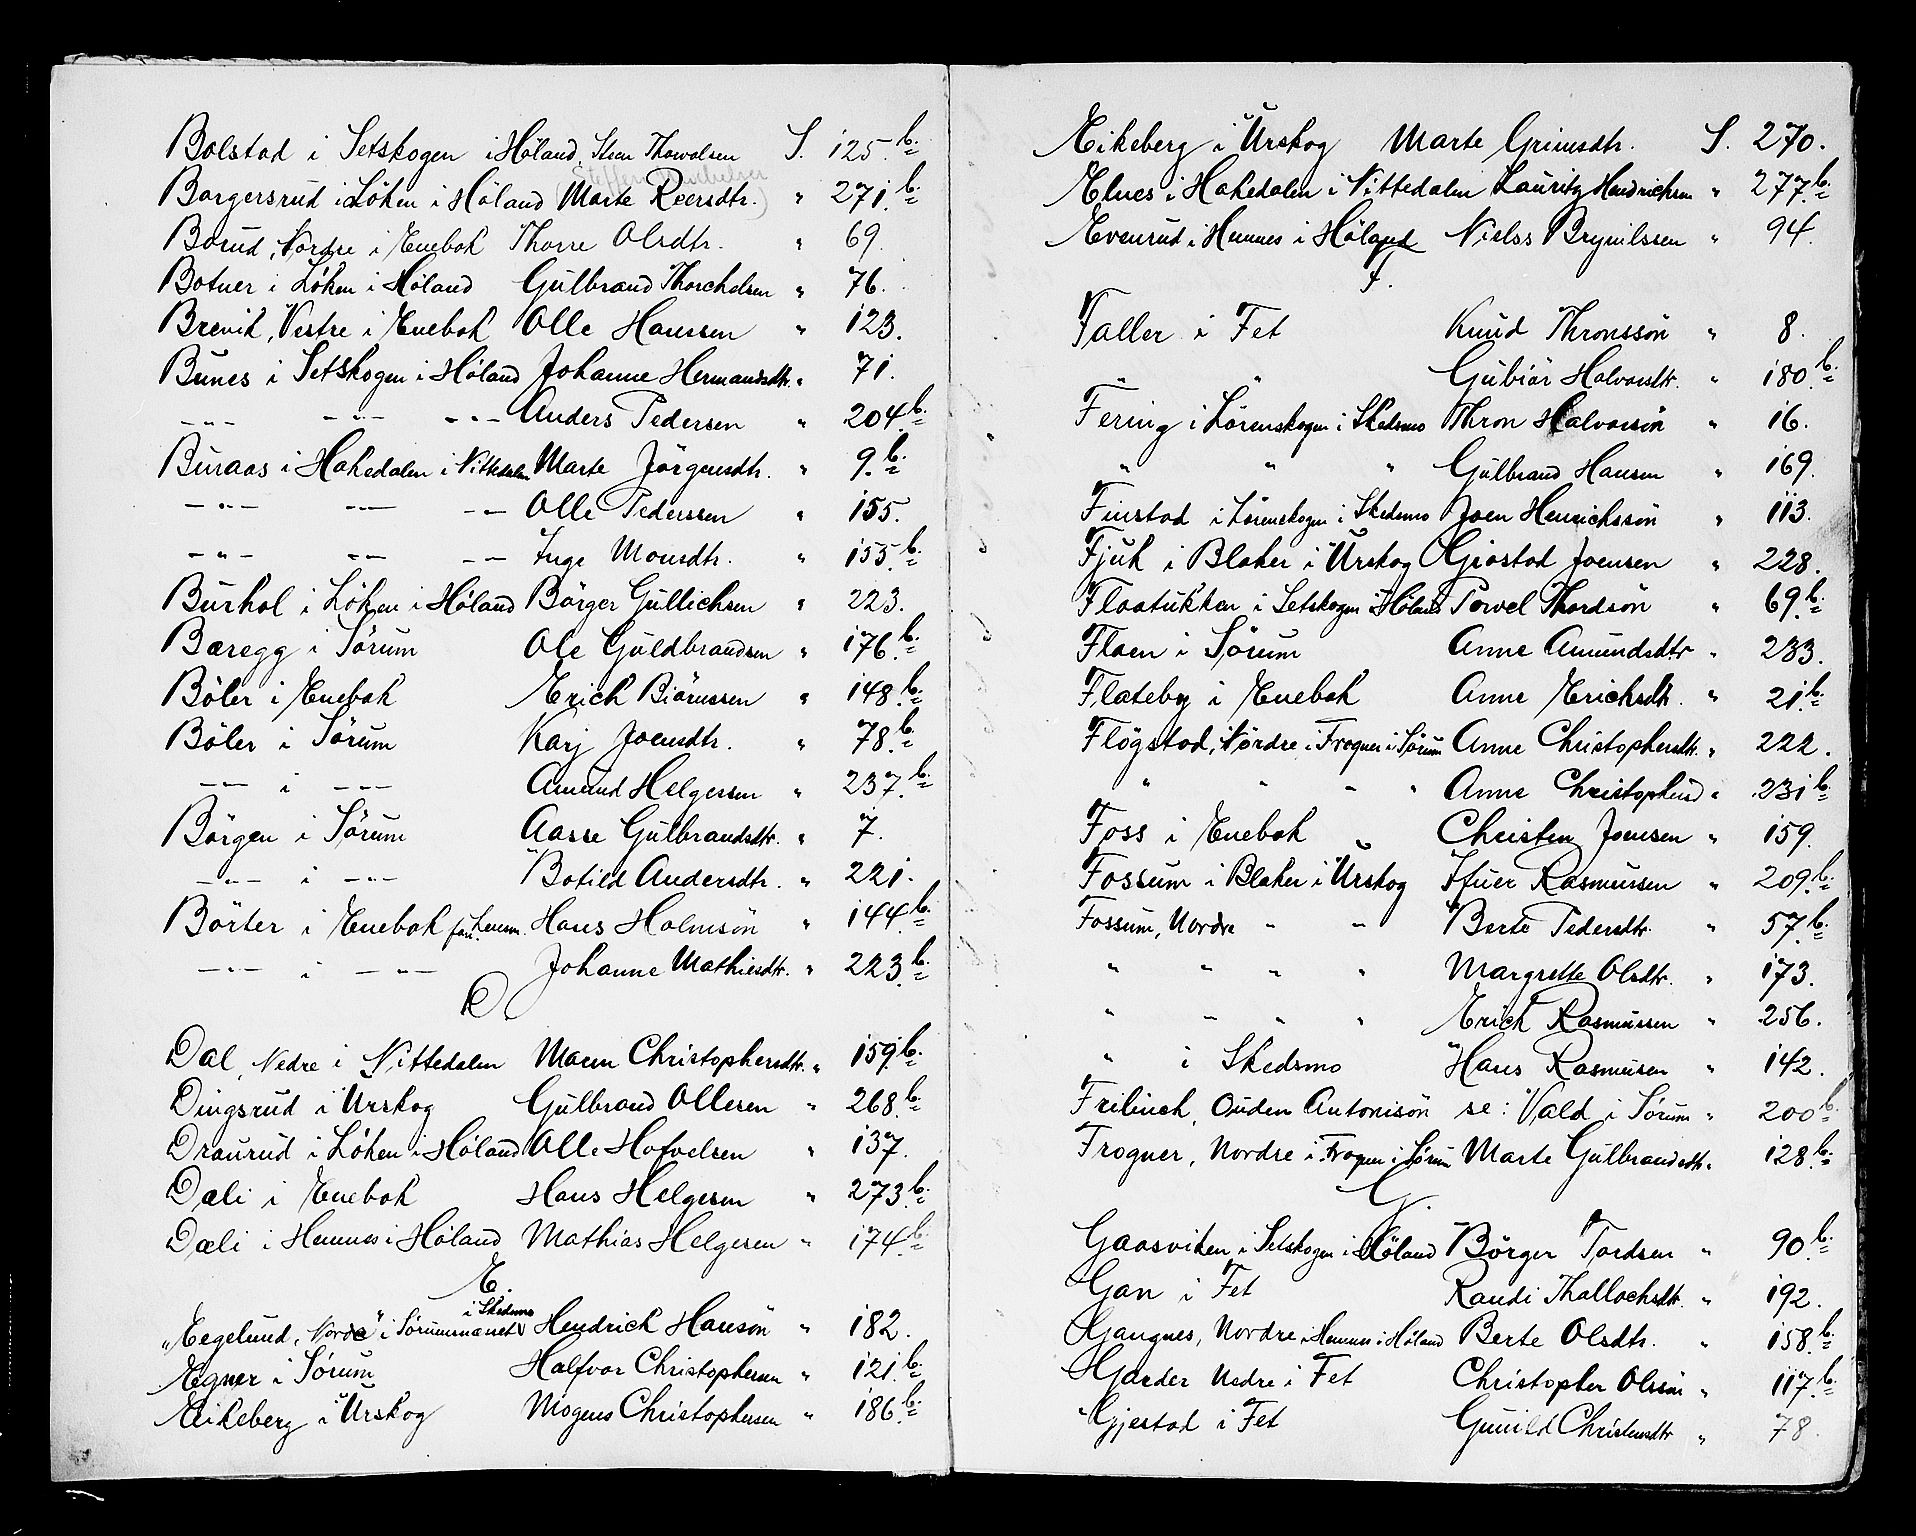 Bolstad i Setskogen i Höland, Sten Thorvalsen S. 125.b.
Borgersrud i Löken i Höland Marte Reersdtr. " 271.b.
Borud, Nordre i Enebak Thorre Olsdtr. " 69.
Botner i Löken i Höland Gulbrand Thorchelsen " 76.
Brevik, Vestre i Enebak Olle Hanssen " 123.
Bunes i Setskogen i Höland Johanne Hermandsdtr. " 71.
-"- -"- -"- Anders Pedersen " 204.b.
Buraas i Hakedalen i Nittedalen Marte Jörgensdtr. " 9.b.
-"- -"- -"- Olle Pederssen " 155.
-"- -"- -"- Inge Monsdtr. " 155.b.
Burhol i Löken i Höland Börger Gullichsen " 223.
Bæregg i Sörum Ole Guldbrandsen " 176.b.
Böler i Enebak Erich Biörnssen " 148.b.
Böler i Sörum Karj Joensdtr. " 78.b.
-"- i -"- Amund Helgersen " 237.b.
Börgen i Sörum Aasse Gulbrandsdtr. " 7.
-"- i -"- Botild Andersdtr. " 221.
Börter i Enebak Hans Holmsön " 144.b.
-"- i -"- Johanne Mathiesdtr. " 223.b.
D.
Dal, Nedre i Nittedalen Maren Christophersdtr. " 159.b.
Dingsrud i Urskog Gulbrand Ollesen " 268.b.
Draurud i Löken i Höland Olle Hofvelsen " 137.
Dæli i Enebak Hans Helgesen " 273.b.
Dæli i Hemnes i Höland Mathias Helgesen " 174.b.
E.
i Skedsmo
"Egelund, Nordre" i Sörumsmarket Hendrich Hansön " 182.
Egner i Sörum Halfvor Christophersen " 121.b.
Eikeberg i Urskog Mogens Christophersen " 186.b.
Eikeberg i Urskog Marte Grimsdtr. S. 270.
Elnes i Hakedalen i Nittedalen Lauritz Hendrichsen " 277.b.
Evenrud i Hemnes i Höland Nielss Brynilssen " 94.
F.
Faller i Fet Knud Thronssön " 8.
" " Gubiör Halvorsdtr. " 180.b.
Fering i Lörenskogen i Skedsmo Thron Halvorsön " 16.
" " " Gulbrand Hansen " 169.
Finstad i Lörenskogen i Skedsmo Joen Henrichssön " 113.
Fjuk i Blaker i Urskog Giostad Joensen " 228.
Flaatukken i Setskogen i Höland Povel Thordsön " 69.b.
Flaen i Sörum Anne Amundsdtr " 233.
Flateby i Enebak Anne Erichsdtr. " 21.b.
Flögstad, Nordre i Frogner i Sörum Anne Christophersdtr. " 222.
" " " " Anne Christophersd " 231.b.
Foss i Enebak Christen Joensen " 159.
Fossum i Blaker i Urskog Ifuer Rasmussen " 209.b.
Fossum, Nordre " " Berte Pedersdtr. " 57.b.
" " " " Margrette Olsdtr. " 173.
" " " " Erich Rasmussen " 256.
" i Skedsmo Hans Rasmusen " 142.
Fribiuch, Ouden Antonisön se: Vald i Sörum " 200.b.
Frogner, Nordre i Frogner i Sörum Marte Gulbrandsdtr. " 128.b.
G.
Gaasviken i Setskogen i Höland Börger Tordsen " 90.b.
Gan i Fet Randi Thallachsdtr. " 192.
Gangnes, Nordre i Hemnes i Höland Berte Olsdtr. " 158.b.
Garder Nedre i Fet Christopher Olssön " 117.b.
Gjestad i Fet Gunild Christensdtr " 78.